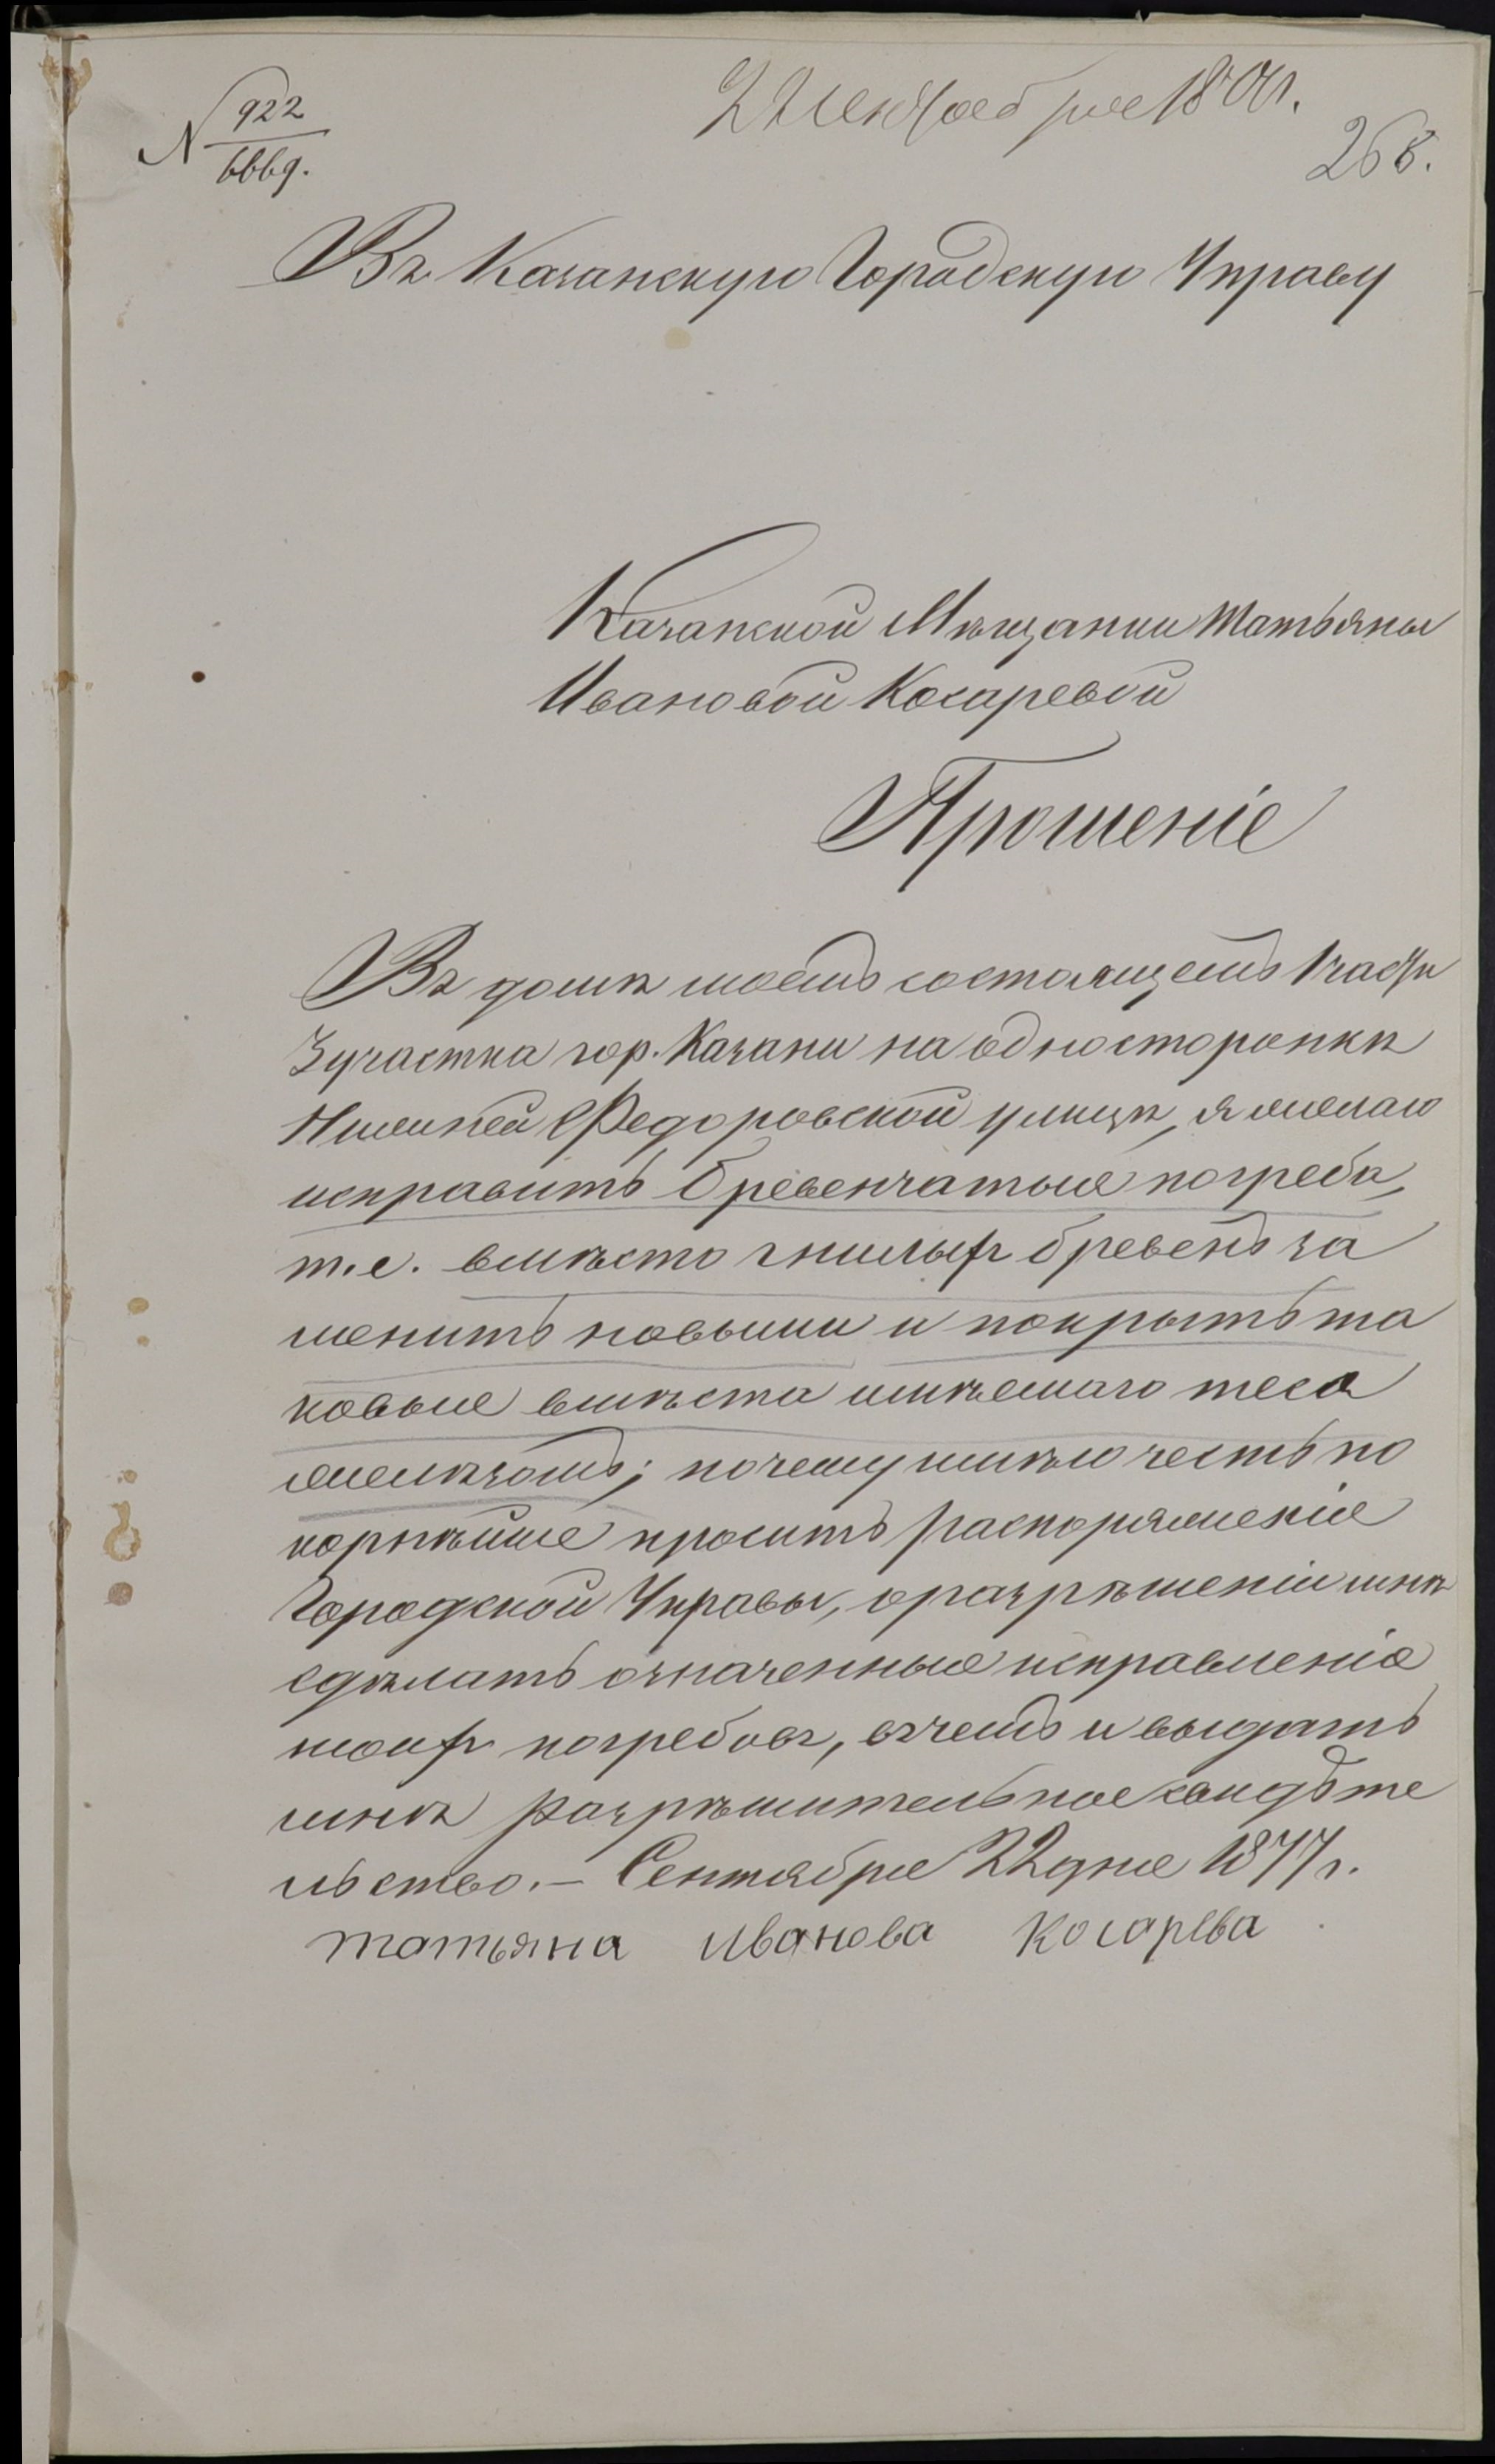 № 922
6669.
22 сентября 1877 г.
268.
Въ Казанскую Городскую Управу
Казанской Мѣщанки Татьяны
Ивановой Косаревой
Прошеніе
Въ домѣ моемъ состоящемъ 1 части
3 участка гор. Казани на односторонкѣ
Нижней Федоровской улицѣ, я желаю
исправить бревенчатые погреба,
т.е. вмѣсто гнилыхъ бревенъ за
менить новыми и покрыть та
ковые вмѣста имѣемаго теса
желѣзомъ; почему имѣю честь по
корнѣйше просить распоряженіе
Городской Управы, о разрѣшеніи мнѣ
сдѣлать означенные исправленіе
моихъ погребовъ, вчемъ и выдать
мнѣ разрѣшительное свидѣте
льство. — Сентября 22 дня 1877 г.
Татьяна Иванова Косарева